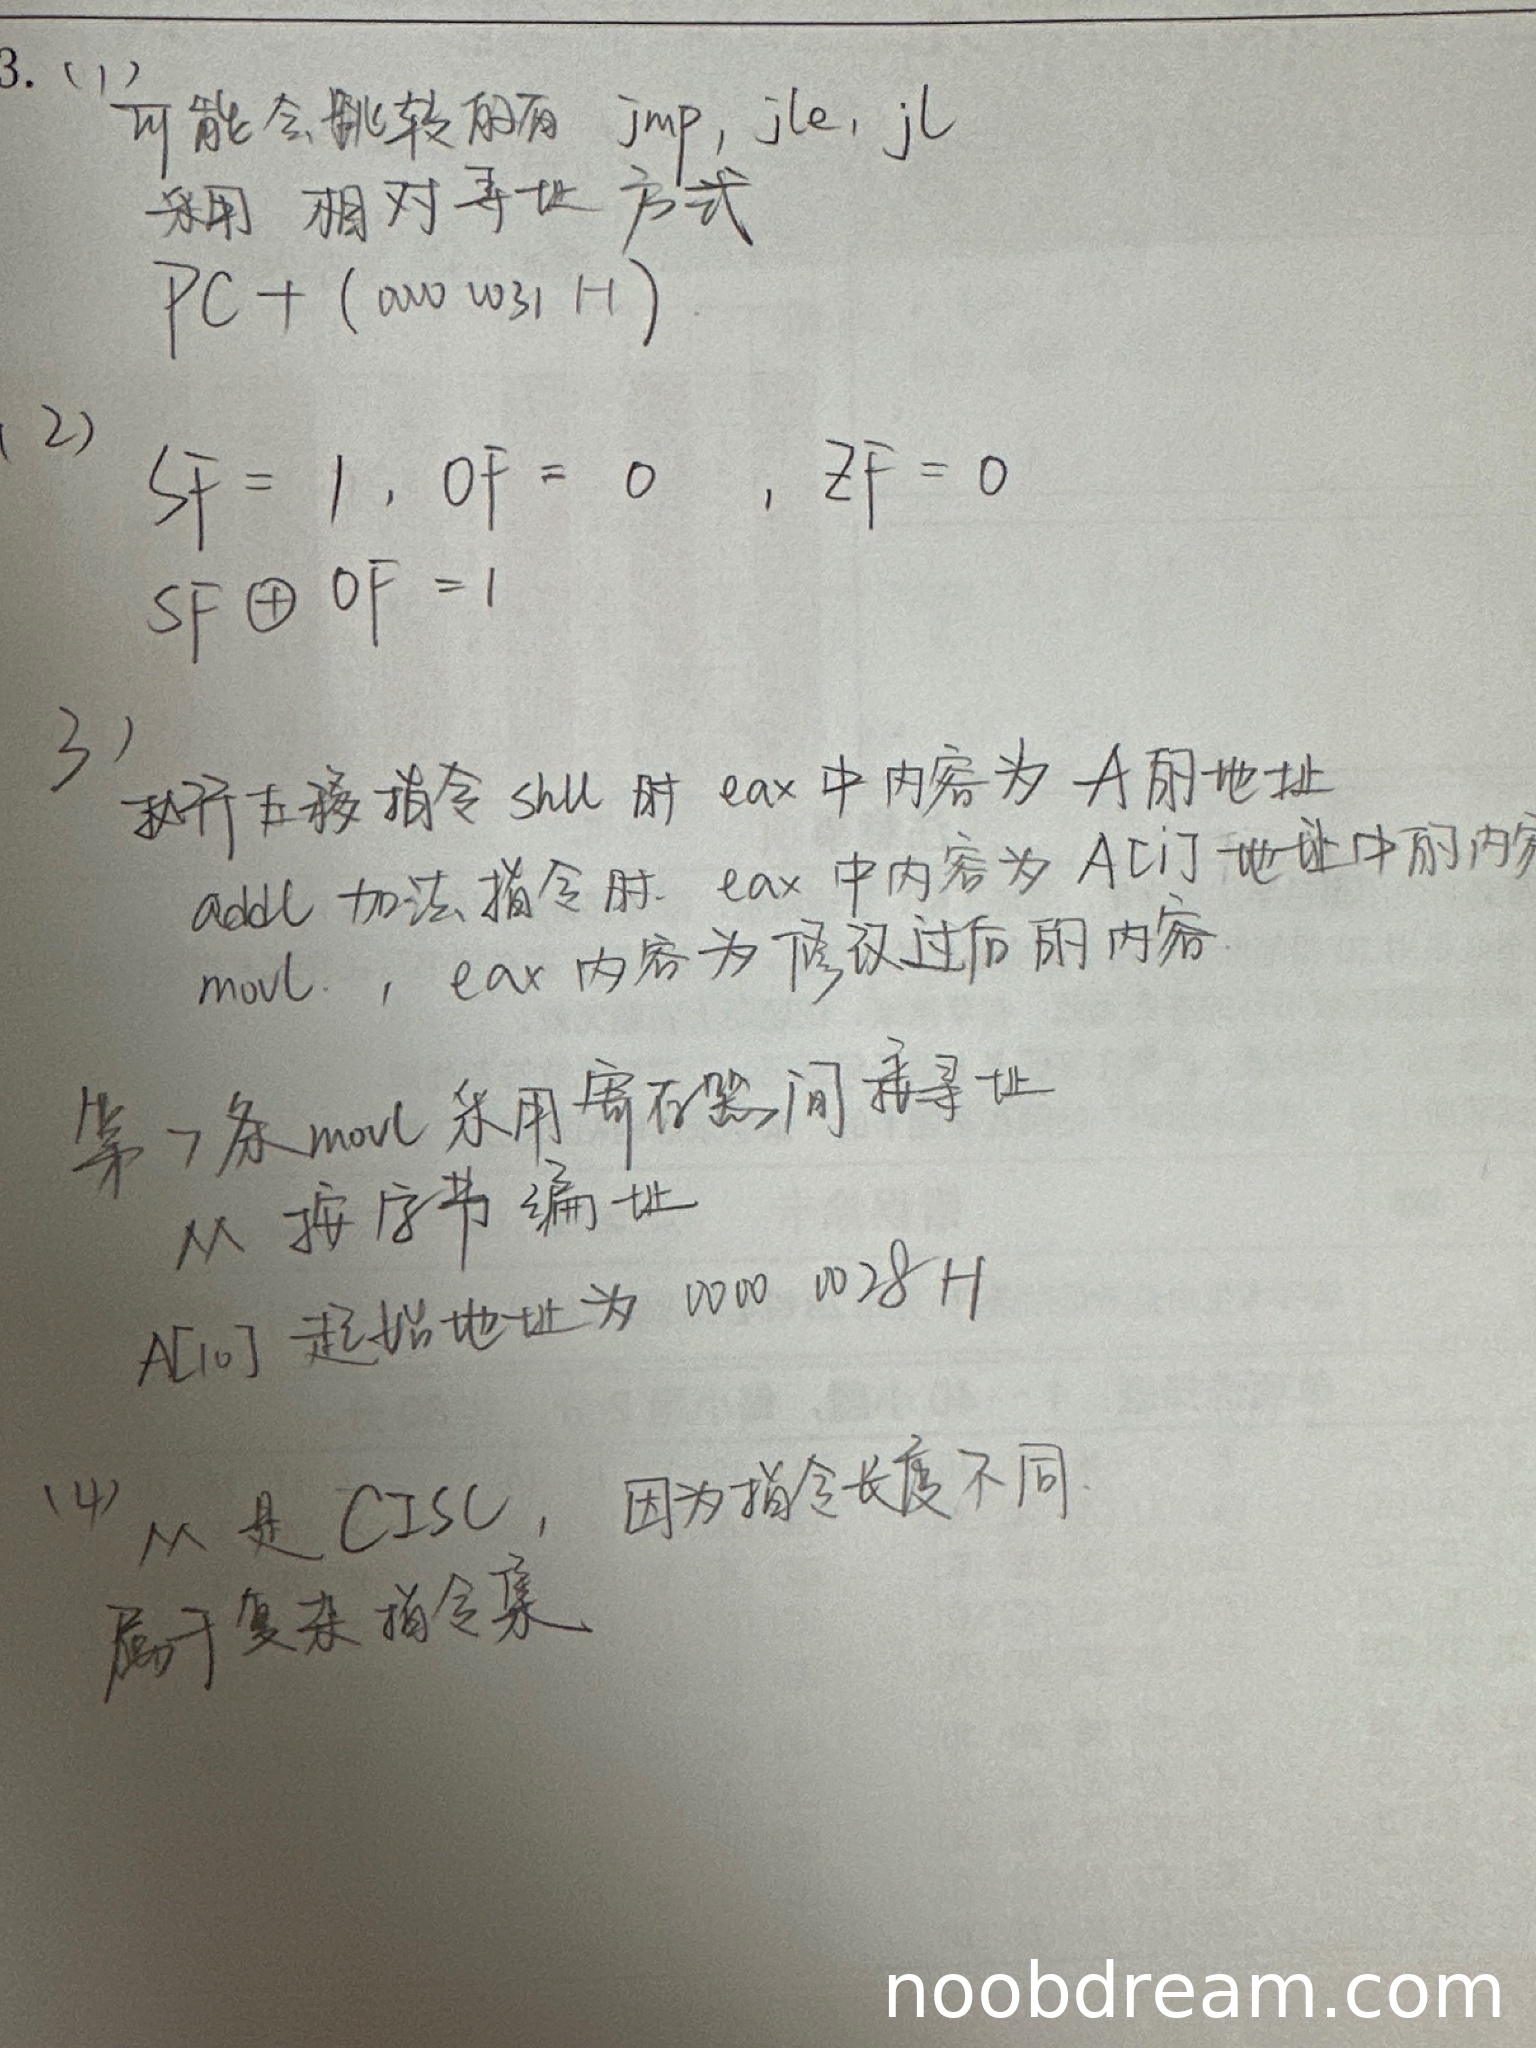 3. (1)
可能会跳转的有 jmp, jle, jl
采用 相对寻址方式
PC + (0000 0031 H)
(2)
SF = 1, OF = 0 , ZF = 0
SF ⊕ OF = 1
3)
执行左移指令 shll 时 eax 中内容为 A 的地址
addl 加法指令时. eax 中内容为 A[i] 地址中的内容
movl. , eax 内容为修改过后的内容.
第7条 movl 采用寄存器间接寻址
M 按字节编址
A[10] 起始地址为 0000 0028 H
(4) M 是 CISC, 因为指令长度不同.
属于复杂指令集
noobdream.com